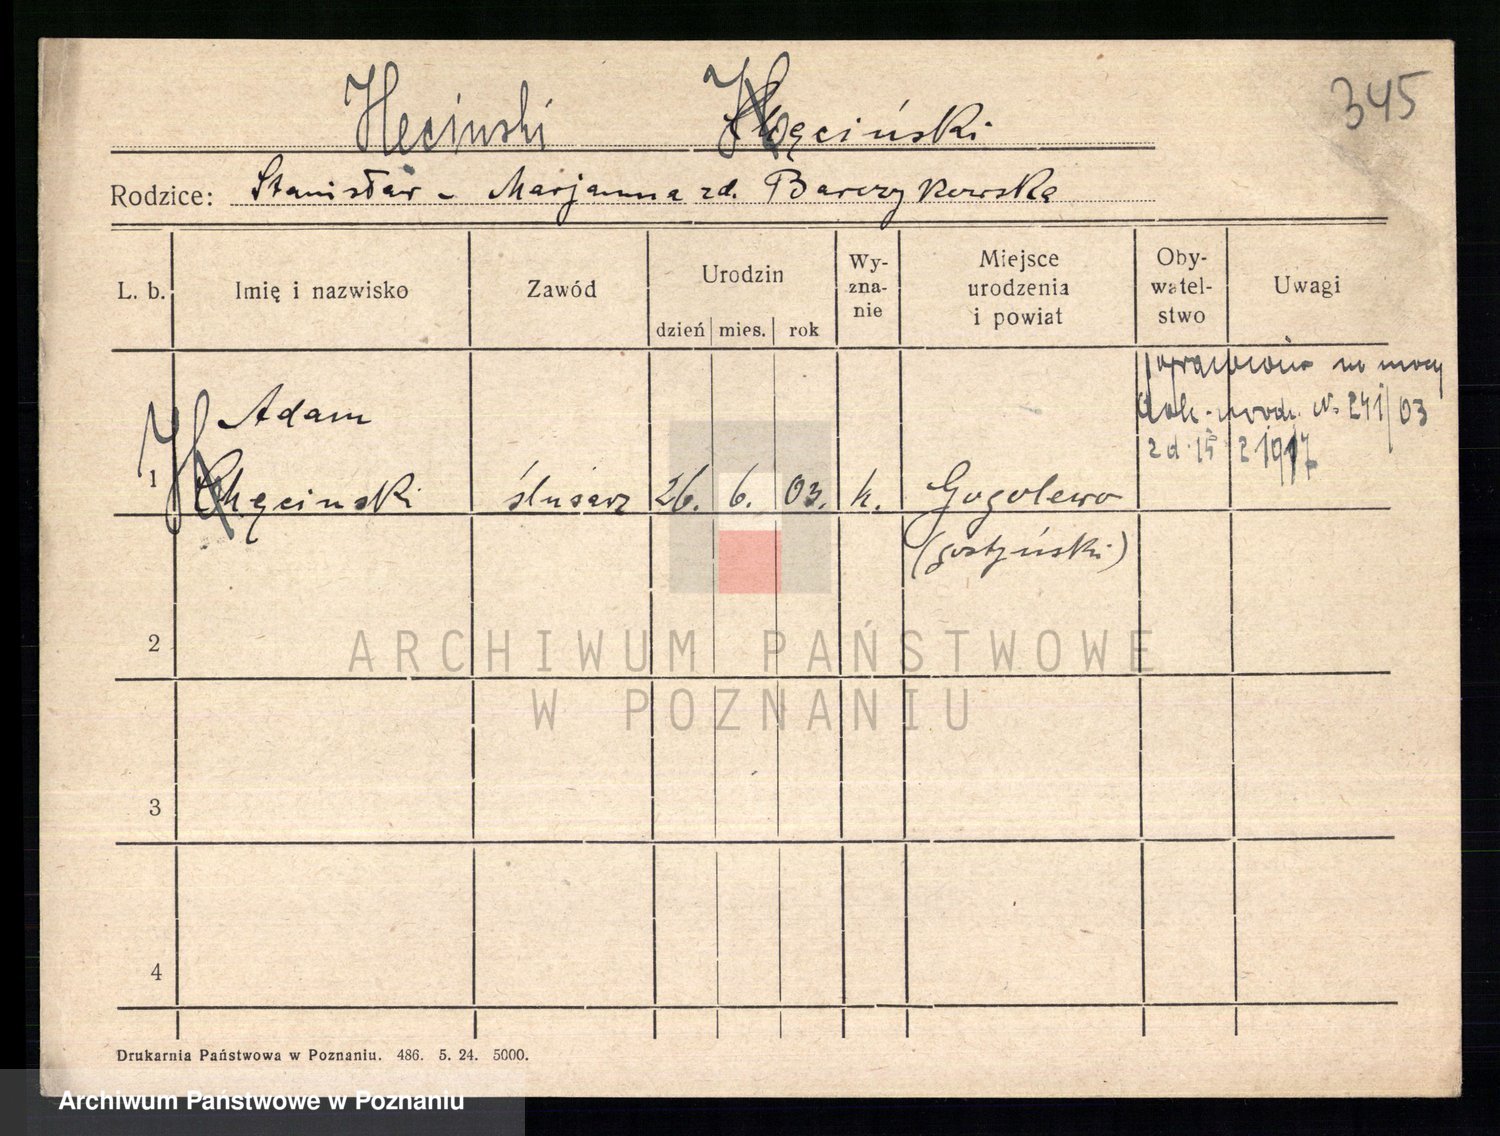 345
Hęcinski Hęciński
Rodzice: Stanisław - Marjanna zd. Barczykowska
L. b. Imię i nazwisko Zawód Urodzin Wyznanie Miejsce urodzenia i powiat Obywatelstwo Uwagi
dzień mies. rok
na mocy
N. 241/03
z d. 15 2 1917
Adam
1 Hęcinski ślusarz 26. 6. 03. k. Gogolewo
(gostyński)
2
ARCHIWUM PAŃSTWOWE
W POZNANIU
3
4
Drukarnia Państwowa w Poznaniu. 486. 5. 24. 5000.
Archiwum Państwowe w Poznaniu